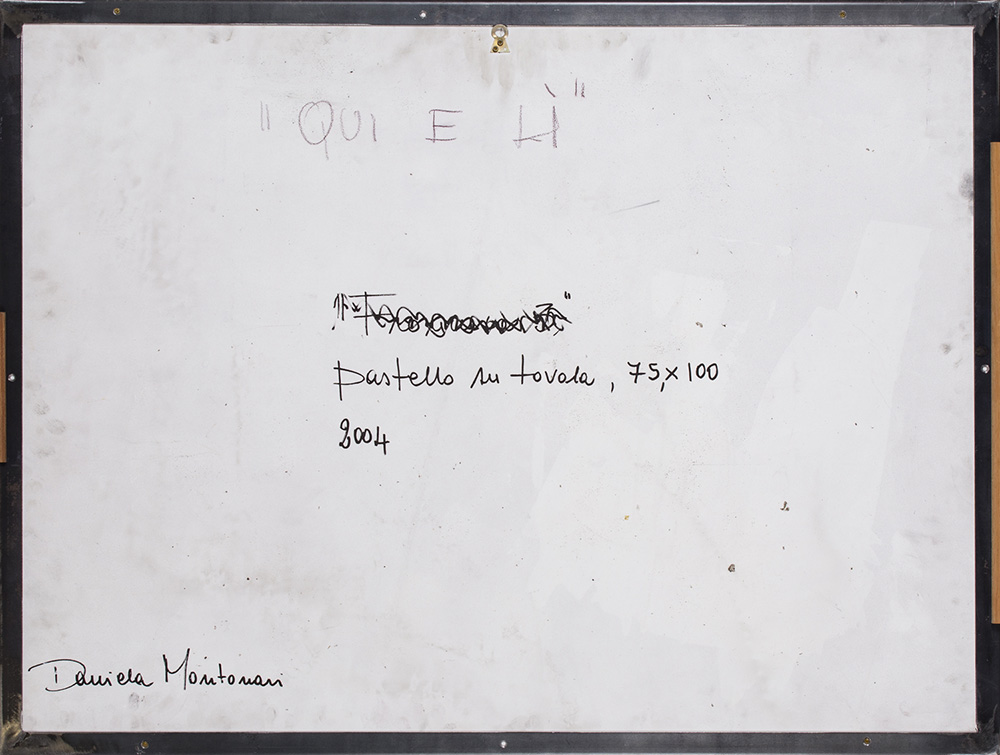 "QUI E LÌ"
pastello su tavola, 75x100
2004
Daniela Montanari